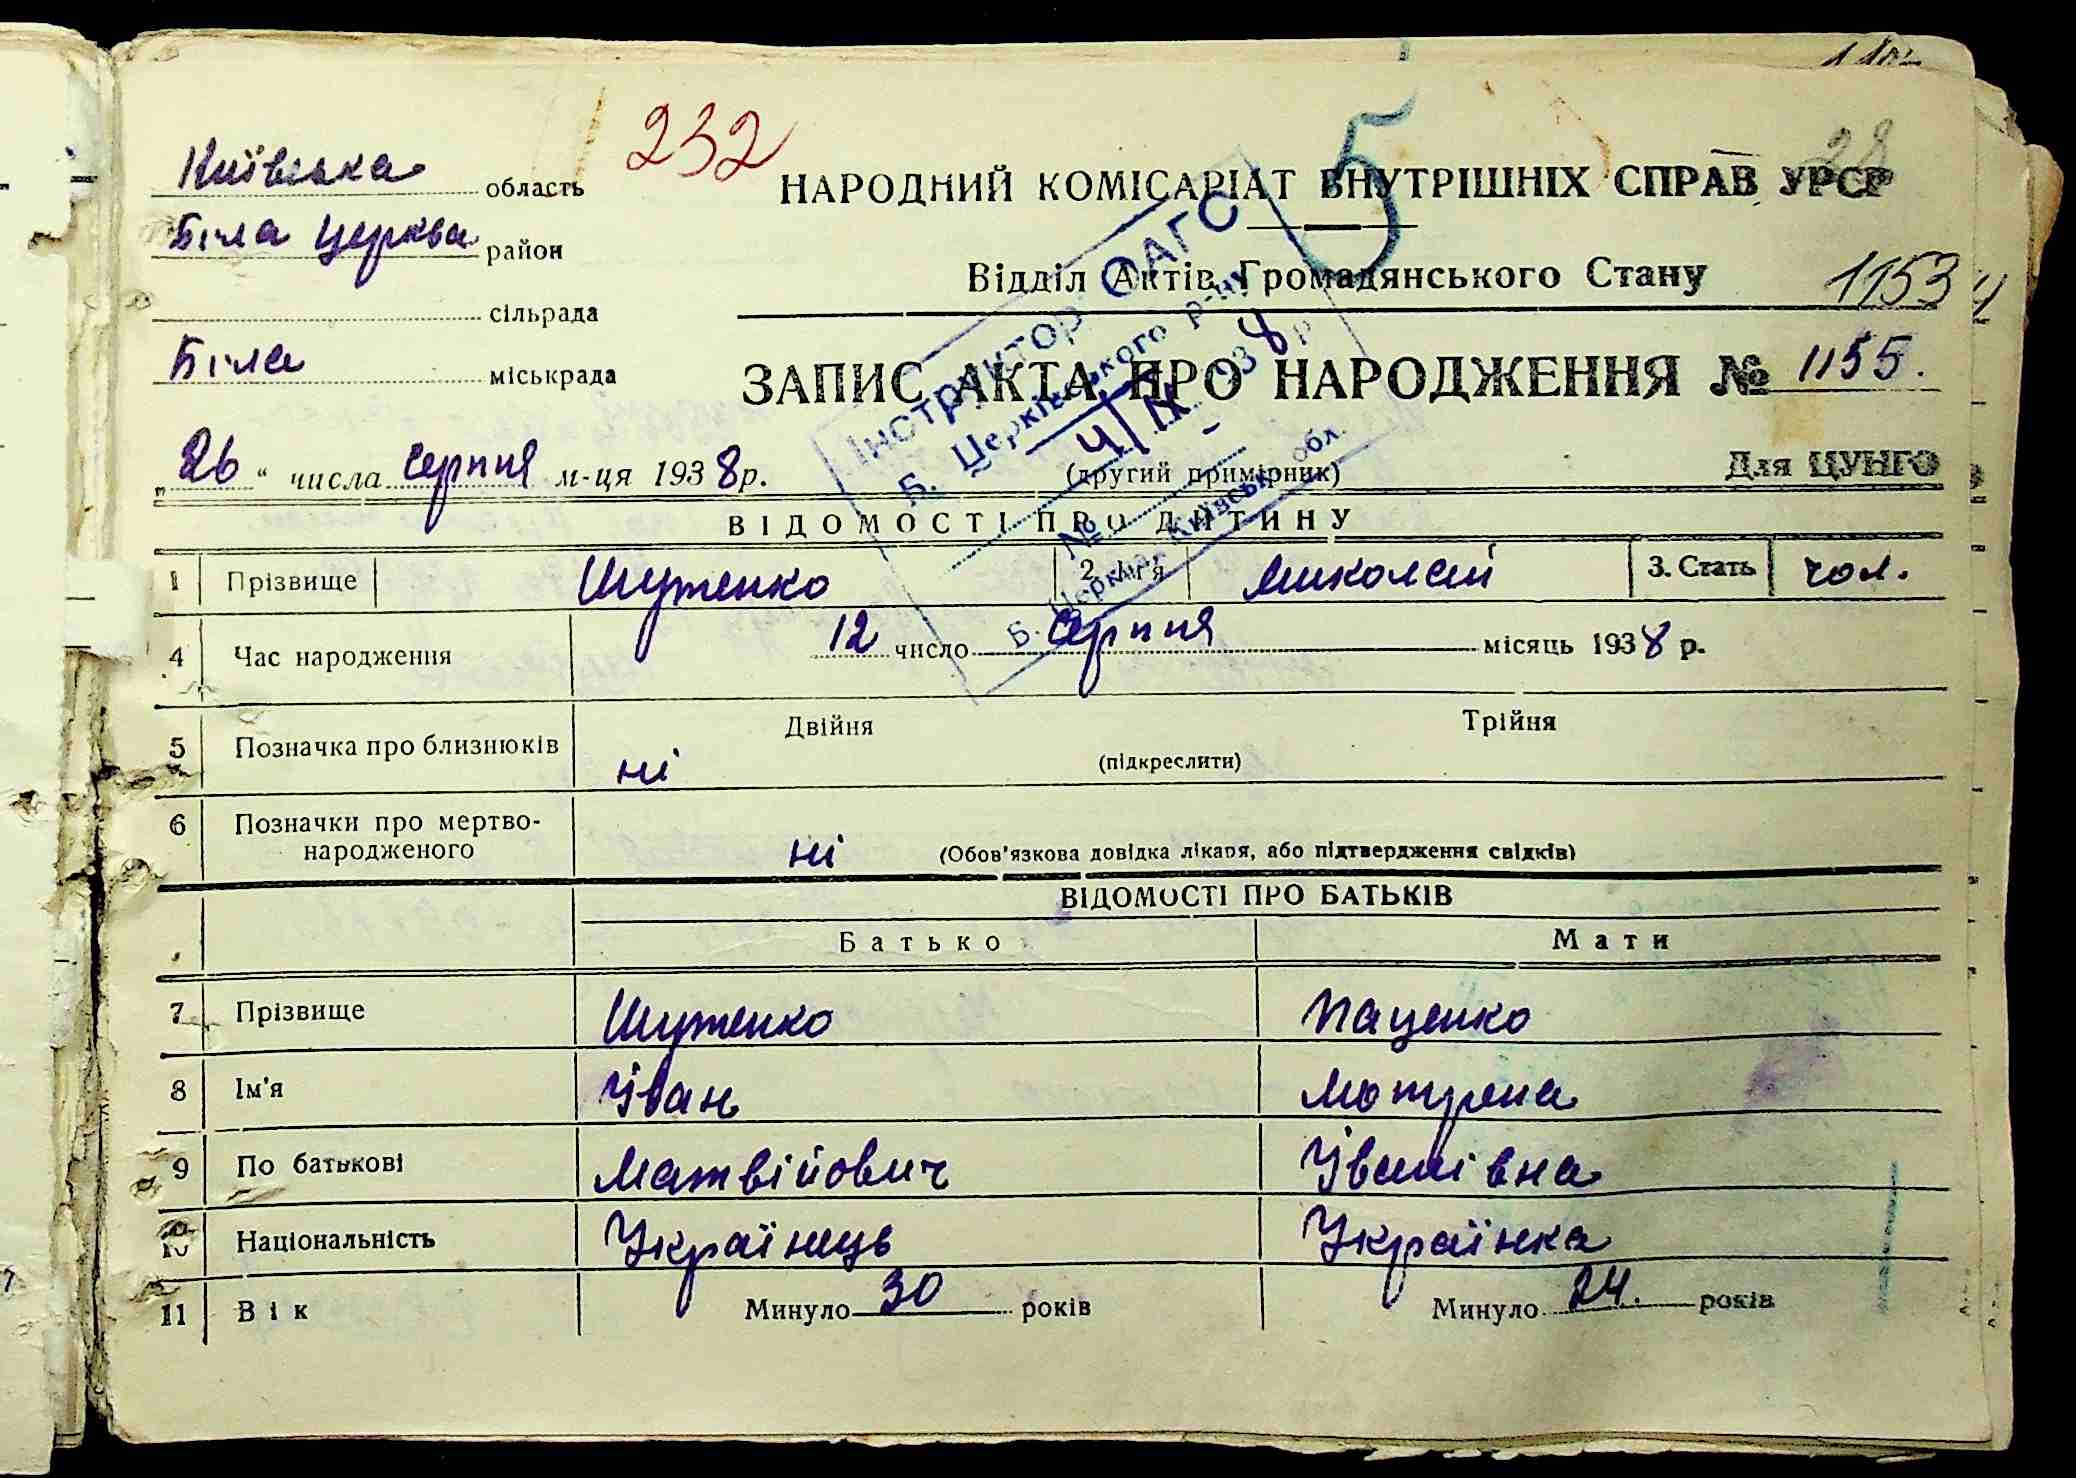 232
5
28
Київська область
Біла Церква район
сільрада
Біла міськрада
НАРОДНИЙ КОМІСАРІАТ ВНУТРІШНІХ СПРАВ УРСР
Відділ Актів Громадянського Стану
1153
ЗАПИС АКТА ПРО НАРОДЖЕННЯ № 1155.
„26“ числа Серпня м-ця 1938 р.
(другий примірник)
Для ЦУНГО
Інструктор ОАГС
Б. Церківського р-ну
4/IX 1938 р
№
Б. Церква, Київськ. обл.
ВІДОМОСТІ ПРО ДИТИНУ
1 Прізвище Шуженко 2. Ім'я Миколай 3. Стать чол.
4 Час народження 12 число Серпня місяць 1938 р.
5 Позначка про близнюків ні Двійня Трійня
(підкреслити)
6 Позначки про мертво-
народженого ні (Обов'язкова довідка лікаря, або підтвердження свідків)
ВІДОМОСТІ ПРО БАТЬКІВ
Батько Мати
7 Прізвище Шуженко Паценко
8 Ім'я Іван Мотрена
9 По батькові Матвійович Іванівна
10 Національність Українець Українка
11 Вік Минуло 30 років Минуло 24. років